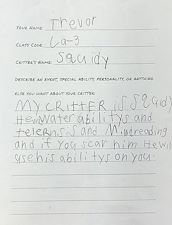 YOUR NAME: Trevor
CLASS CODE: La-3
CRITTER'S NAME: Squidy
DESCRIBE AN EVENT, SPECIAL ABILITY, PERSONALITY, OR ANYTHING
ELSE YOU WANT ABOUT YOUR CRITTER:
My CRITTER is Squidy
He water abilitys and
telekensis and Mindreading
and if you scar him He wil
use his abilitys on you